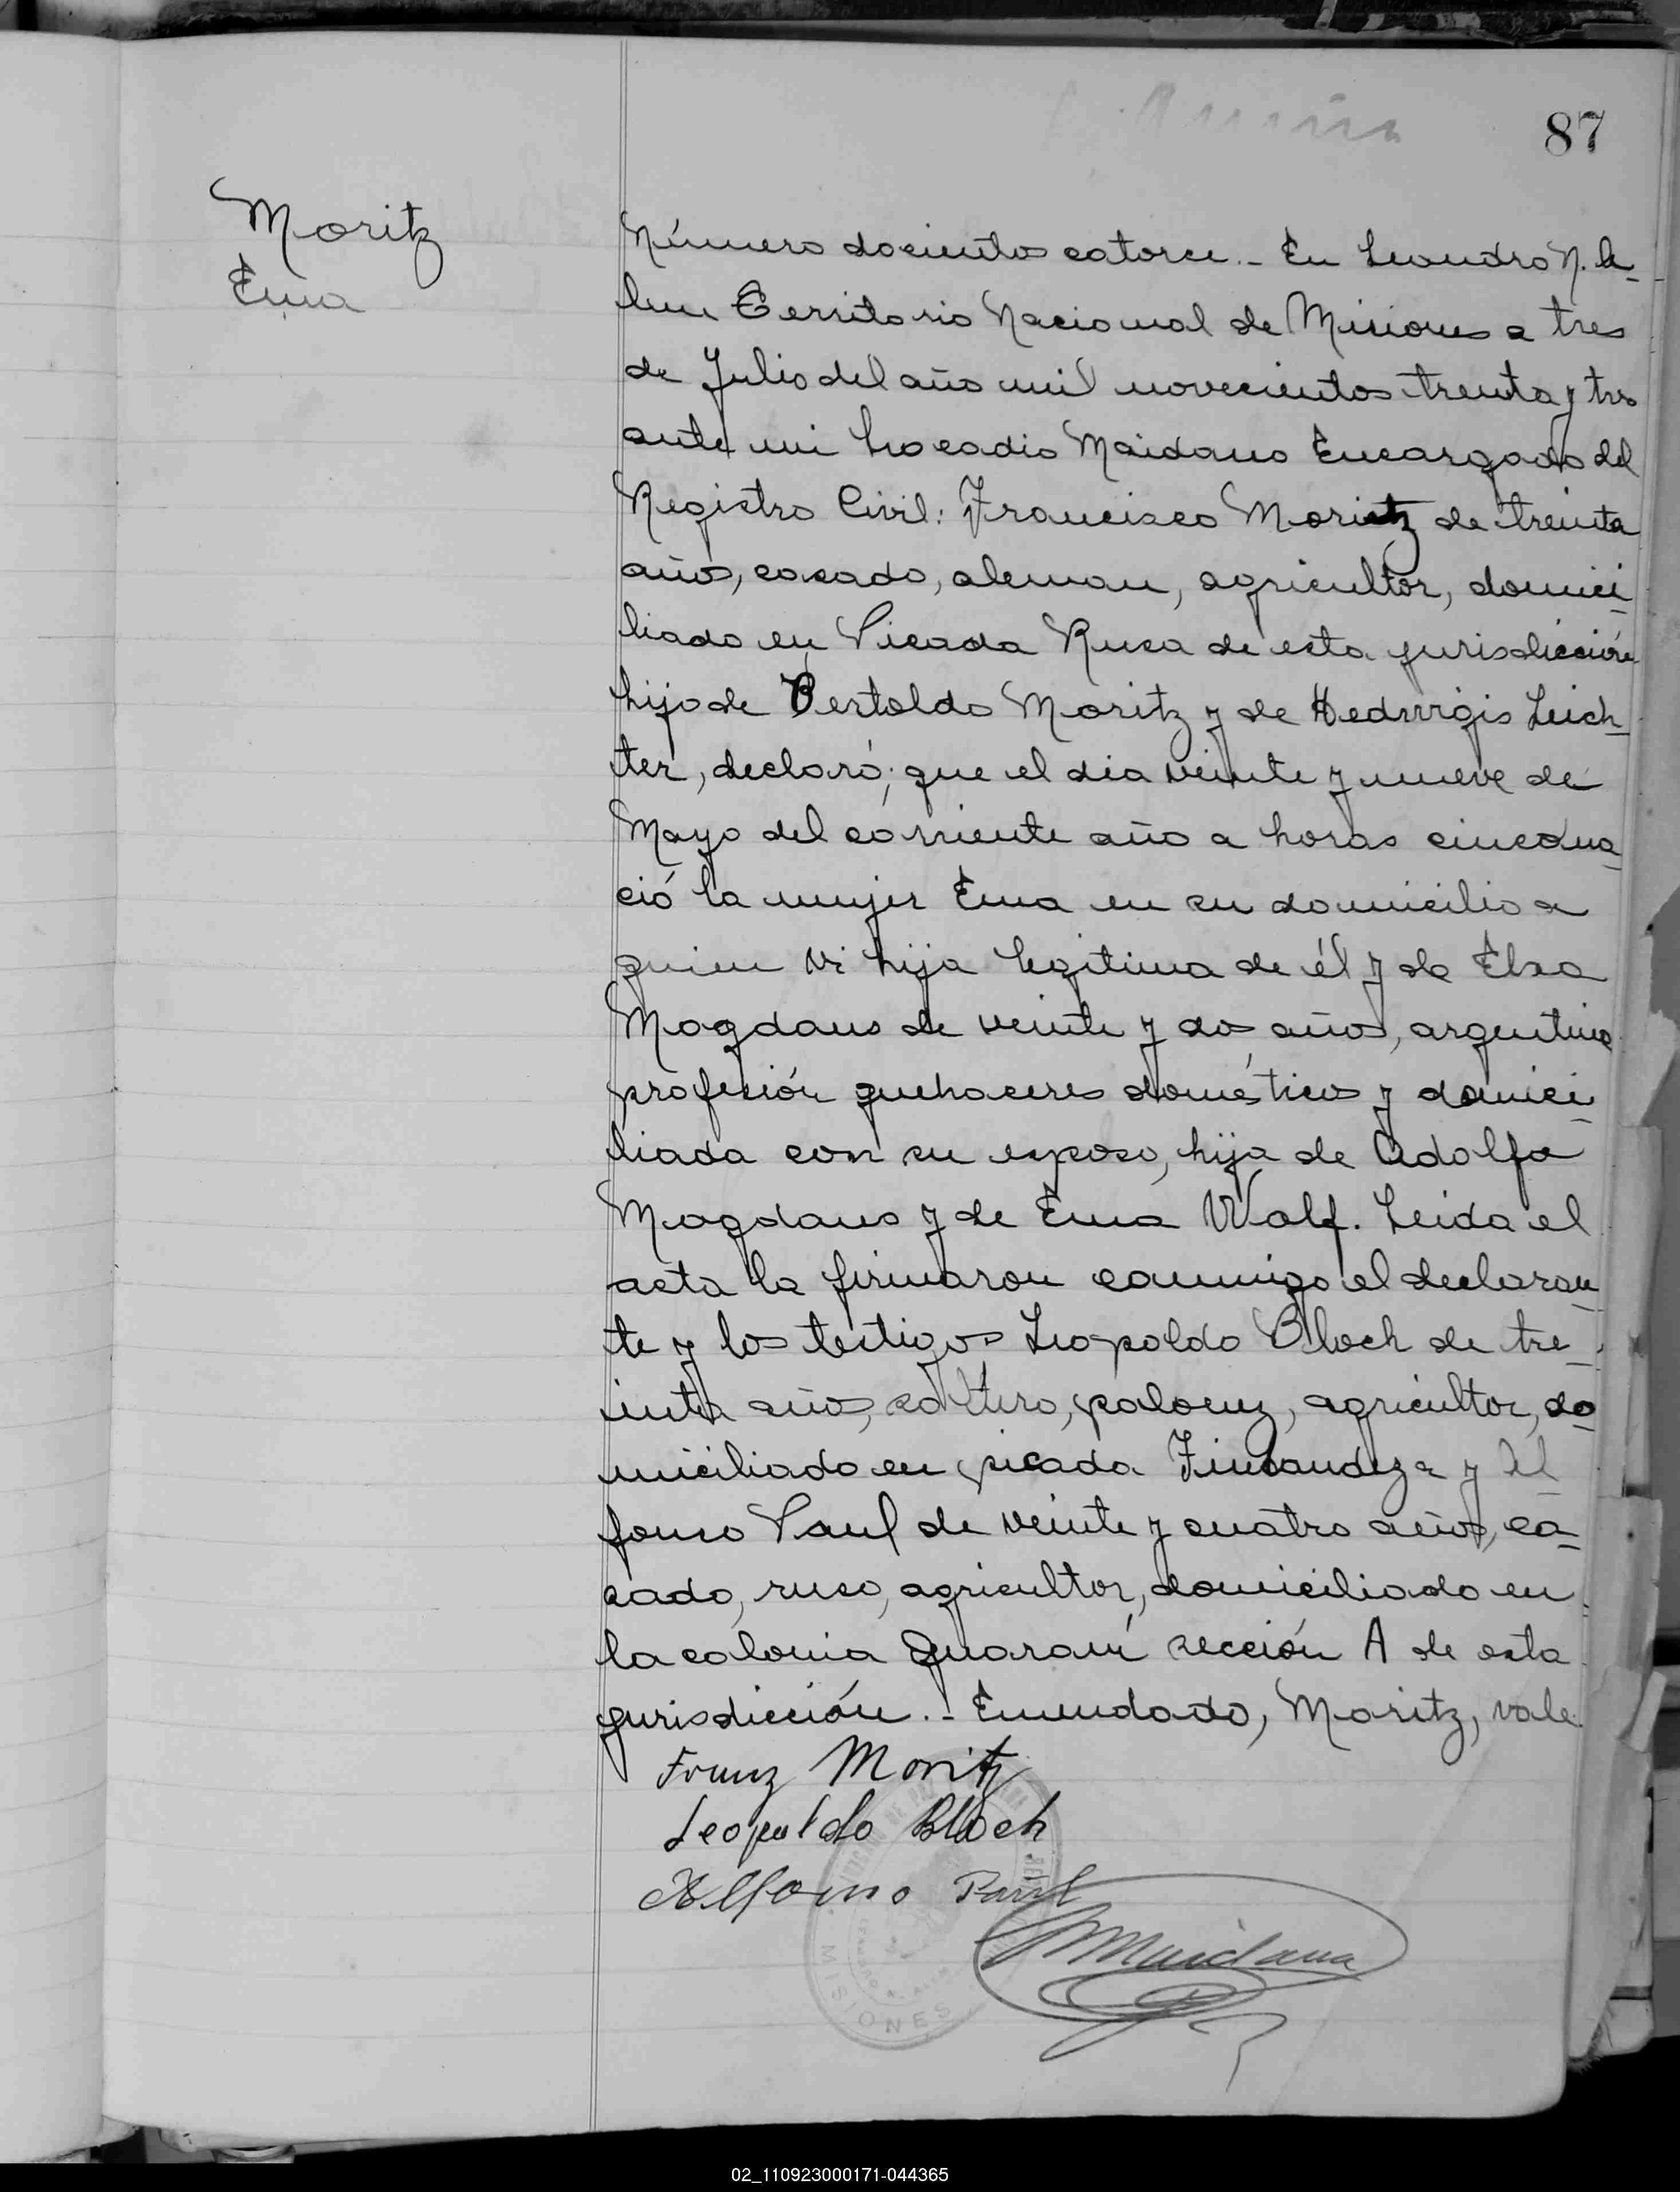 87
Moritz
Ema
Número docientos catorce.- En Leandro N. A-
lem Territorio Nacional de Misiones a tres
de Julio del año mil novecientos treinta y tres
ante mi Leocadio Maidana Encargado del
Registro Civil: Francisco Moritz de treinta
años, casado, aleman, agricultor, domici-
liado en Picada Rusa de esta jurisdicción
hijo de Bertoldo Moritz y de Hedwigis Leich-
ter, declaró; que el dia veinte y nueve de
Mayo del corriente año a horas cinco na-
ció la mujer Ema en su domicilio a
quien vi hija legitima de él y de Elsa
Magdans de veinte y dos años, argentina
profesión quehaceres domésticos y domici-
liada con su esposo, hija de Adolfo
Magdans y de Ema Wolf. Leida el
acta la firmaron conmigo el declaran-
te y los testigos Leopoldo Bloch de tre-
inta años, soltero, polonez, agricultor, do-
miciliado en picada Finlandeza y Al-
fonso Paul de veinte y cuatro años, ca-
sado, ruso, agricultor, domiciliado en
la colonia Guaraní sección A de esta
jurisdicción.- Enmendado, Moritz, vale
Franz Moritz
Leopoldo Bloch
Alfonso Paul
Maidana
MISIONES
02_110923000171-044365